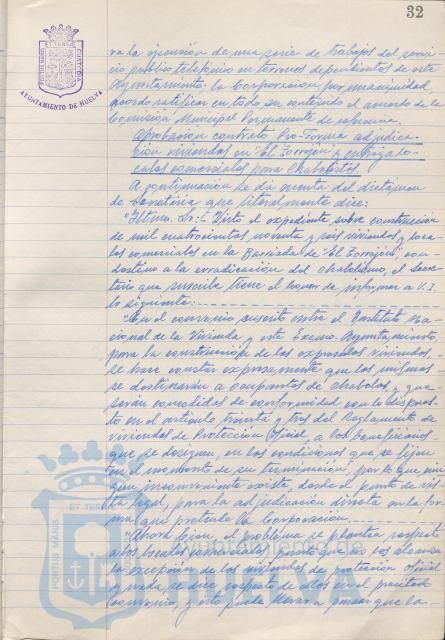 32
AYUNTAMIENTO DE HUELVA
ra la ejecución de una serie de trabajos del servi-
cio público telefónico en terrenos dependientes de este
Ayuntamiento: la Corporación por unanimidad,
acordó ratificar en todo su contenido el acuerdo de la
Comisión Municipal Permanente de referencia.
Aprobación contrato Pro-Forma adjudica-
ción viviendas en "El Torrejón" y entrega lo-
cales comerciales para chabolistas
A continuación se dá cuenta del dictamen
de Secretaría que literalmente dice:
"Iltmo. Sr.: Visto el expediente sobre construcción
de mil cuatrocientas noventa y seis viviendas y loca-
les comerciales en la Barriada de "El Torrejón", con
destino a la erradicación del chabolismo, el Secre-
tario que suscribe tiene el honor de informar a V.I.
lo siguiente:
"En el convenio suscrito entre el Instituto Na-
cional de la Vivienda y este Excmo. Ayuntamiento
para la construcción de las expresadas viviendas,
se hace constar expresamente que las mismas
se destinarán a ocupantes de chabolas y que
serán concedidas de conformidad con lo dispues-
to en el artículo treinta y tres del Reglamento de
Viviendas de Protección Oficial, a los beneficiarios
que se designen, en las condiciones que se fijen
en el momento de su terminación, por lo que nin-
gún inconveniente existe, desde el punto de vis-
ta legal, para la adjudicación directa en la for-
ma que pretende la Corporación.
"Ahora bien, el problema se plantea respecto
a los locales comerciales, puesto que no los alcanza
la excepción de las viviendas de protección oficial
y nada se dice respecto de ellos en el precitado
convenio, y ésto puede llevar a pensar que la
PORTUS MARIS ET TERRAE CUSTODIA
HUELVA